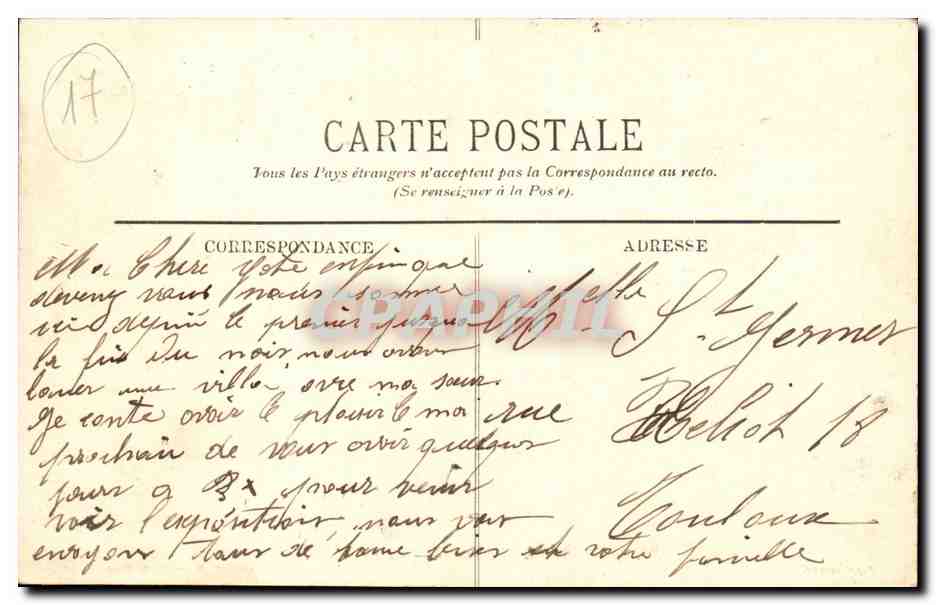 17
CARTE POSTALE
Tous les Pays étrangers n'acceptent pas la Correspondance au recto.
(Se renseigner à la Poste).
CORRESPONDANCE
ADRESSE
CPAPHIL
Ma Chere
devenez vous nous somme
ici depui le premier jusqua
la fin du mois nous avon
louer une villa avec ma sœur
Je conte avoir le plaisir le moi
prochain de vous avoir quelques
jours a Bx pour venir
voir l'exposition nous vou
envoyon tous de bonne bises et votre famille
Melle St Germer
rue Heliot 18
Toulouse